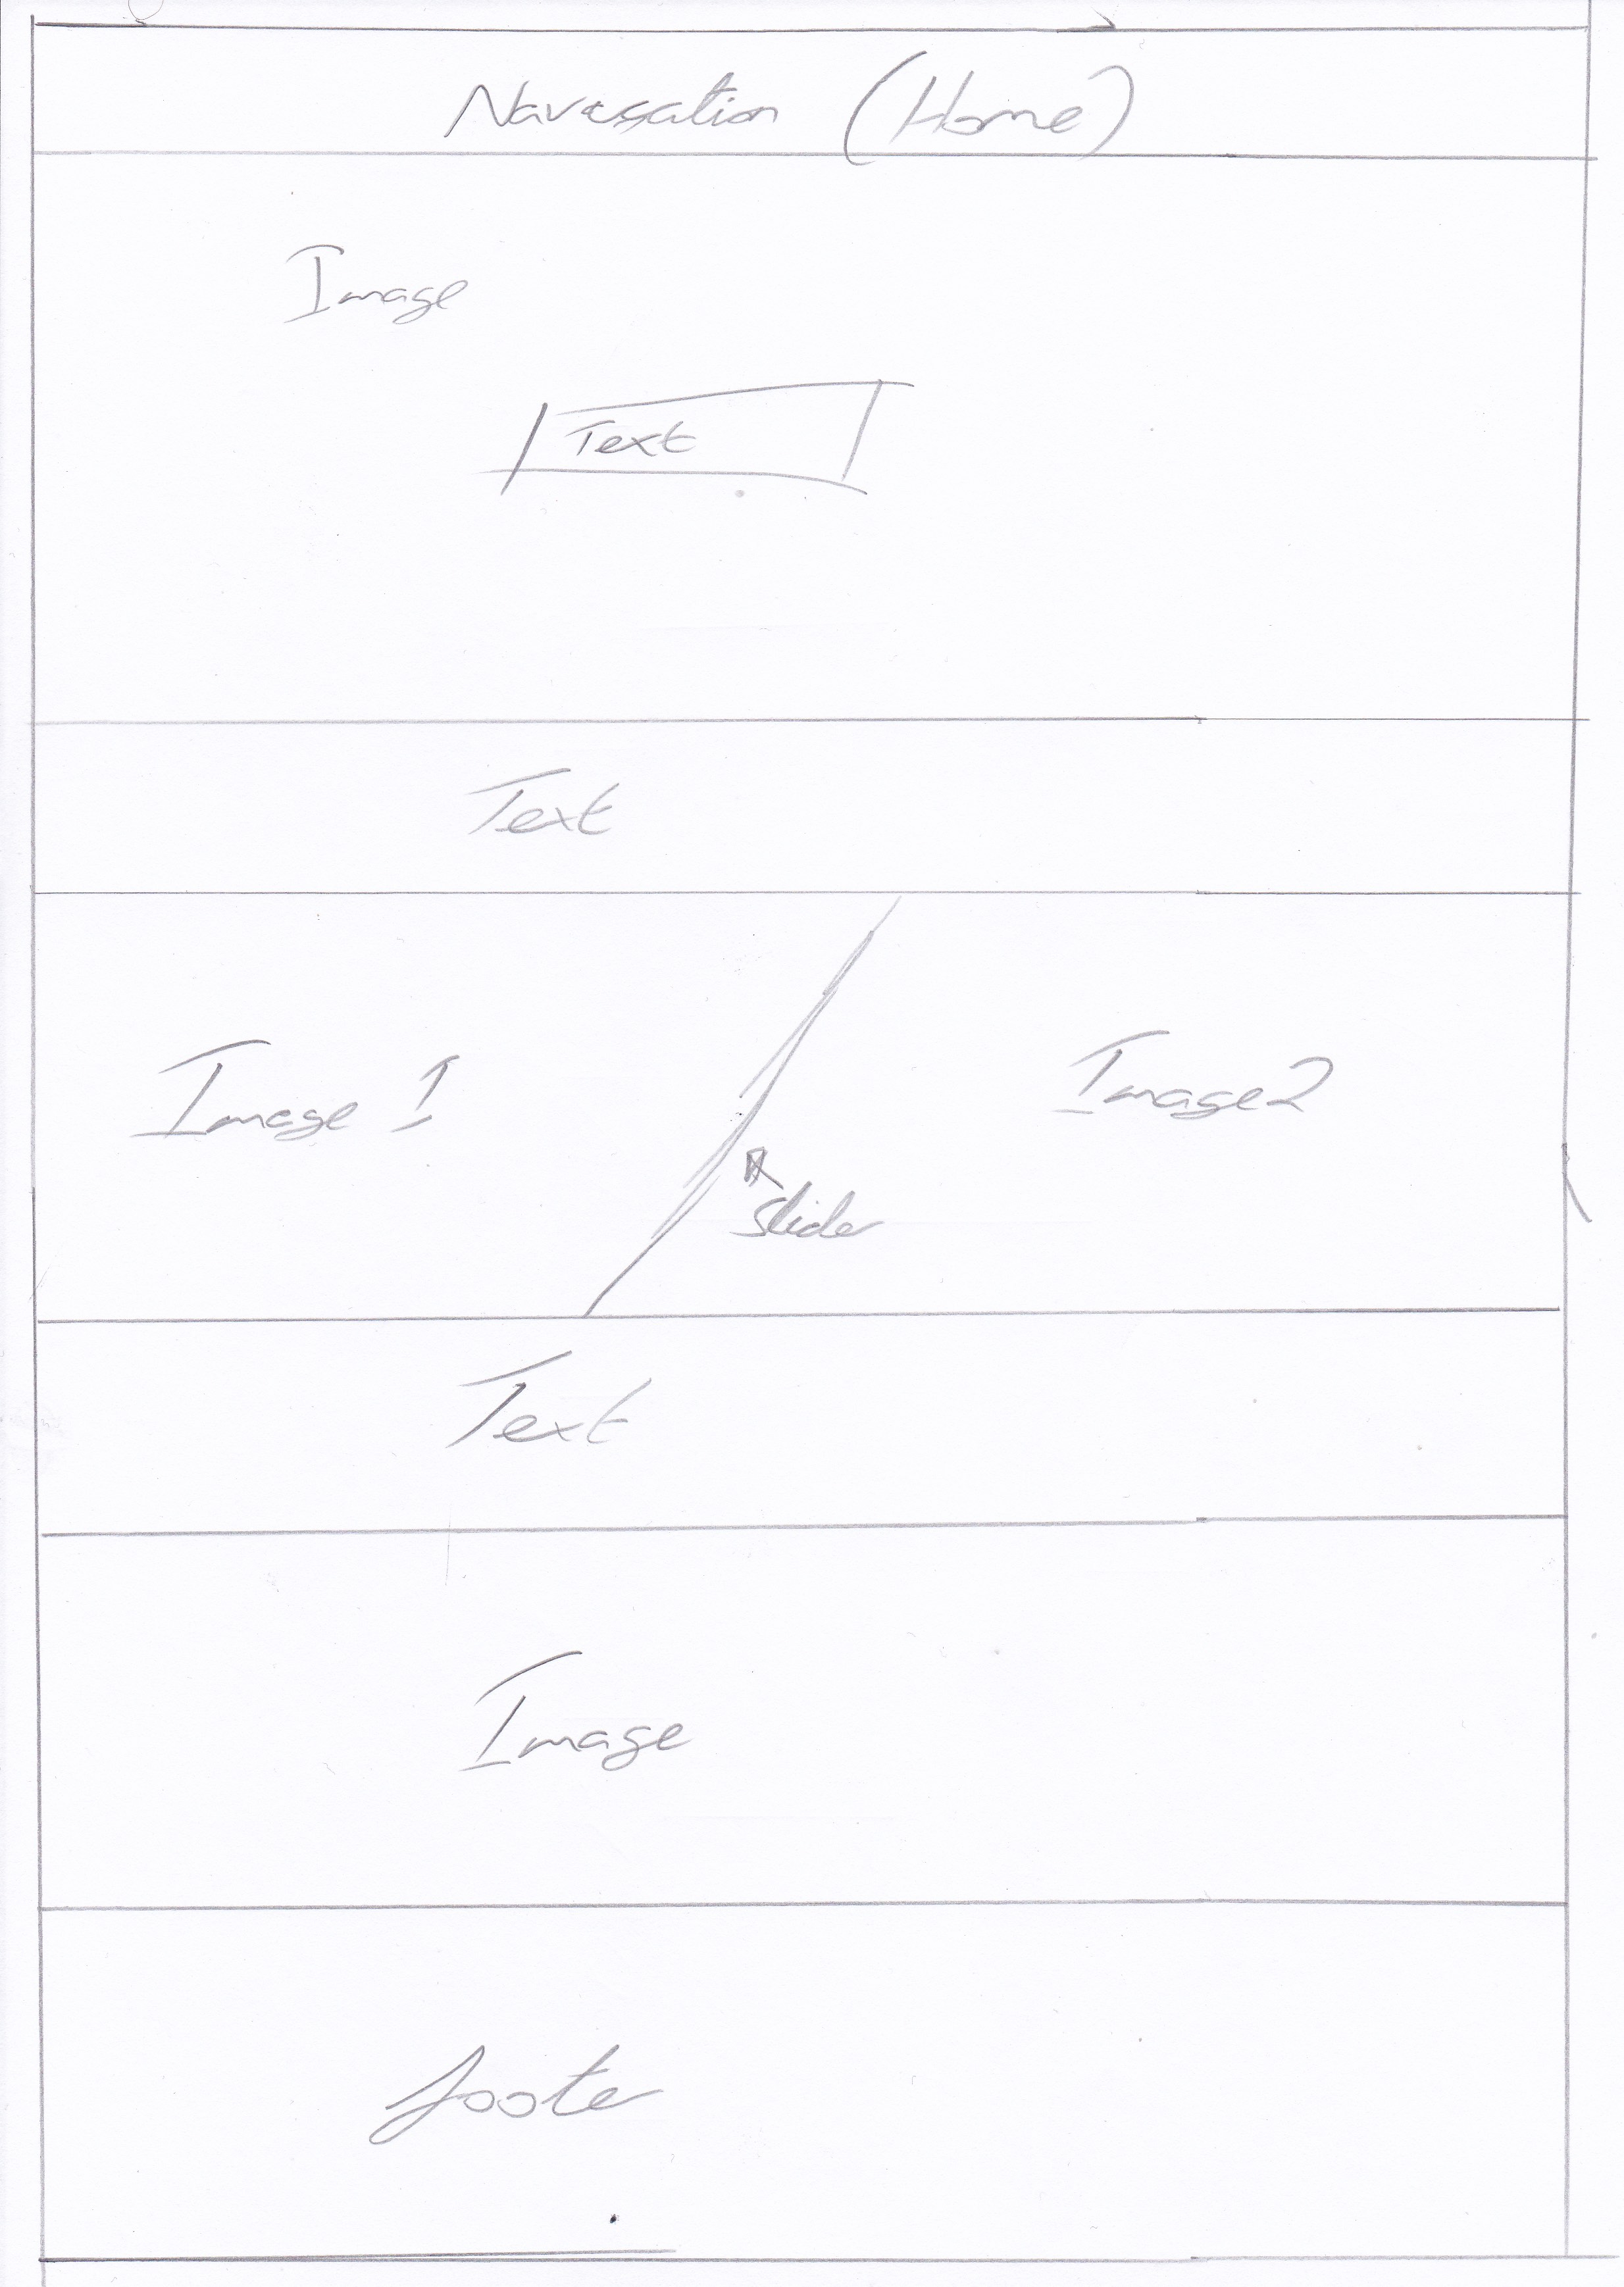 Navigation (Home)
Image
Text
Text
Image 1
Image 2
Slider
Text
Image
footer